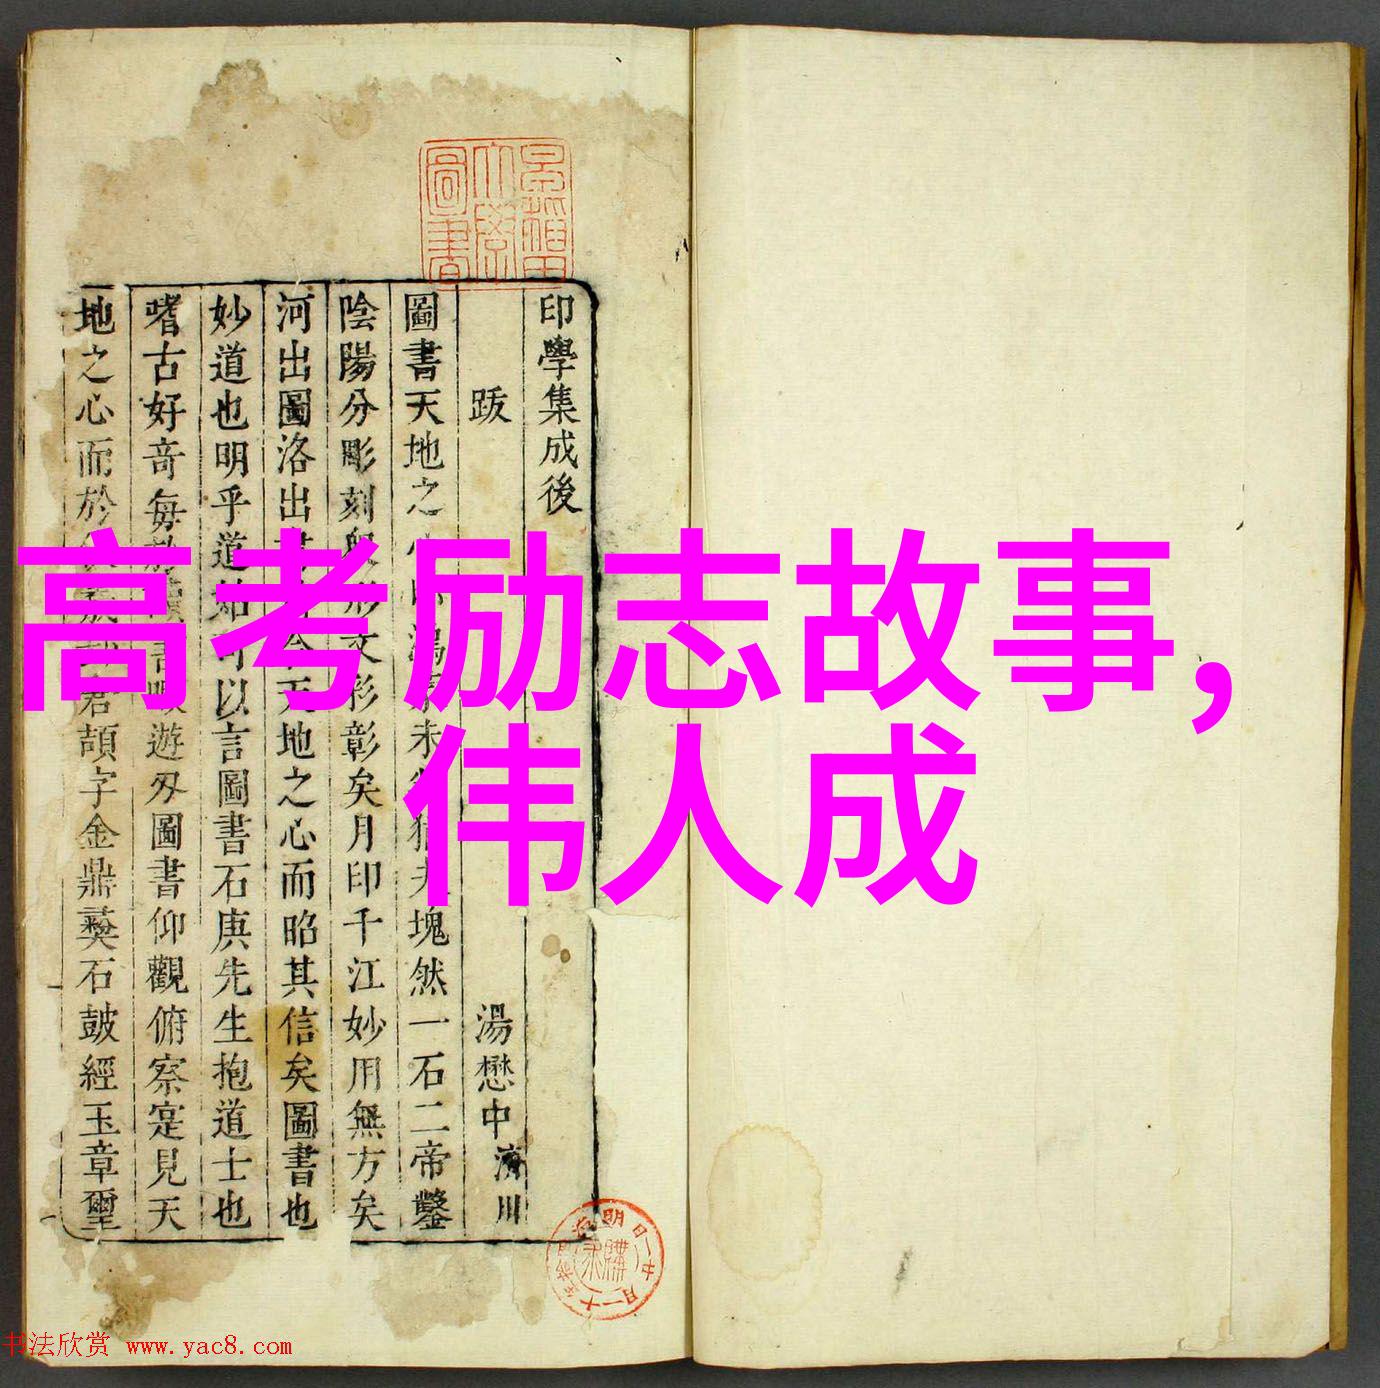 印學集成後
跋
湯懋中濟川
圖書天地之心
未
塊然一石二帝鑿
陰陽分彫刻
文彩彰矣月印千江妙用無方矣
河出圖洛出
天地之心而昭其信矣圖書也
妙道也明乎道
以言圖書石庚先生抱道士也
嗜古好奇每
遊刄圖書仰觀俯察寔見天
地之心而於
君頡字金鼎彝石鼓經玉章璽
高考励志故事,
伟人成
书法欣赏 www.yac8.com